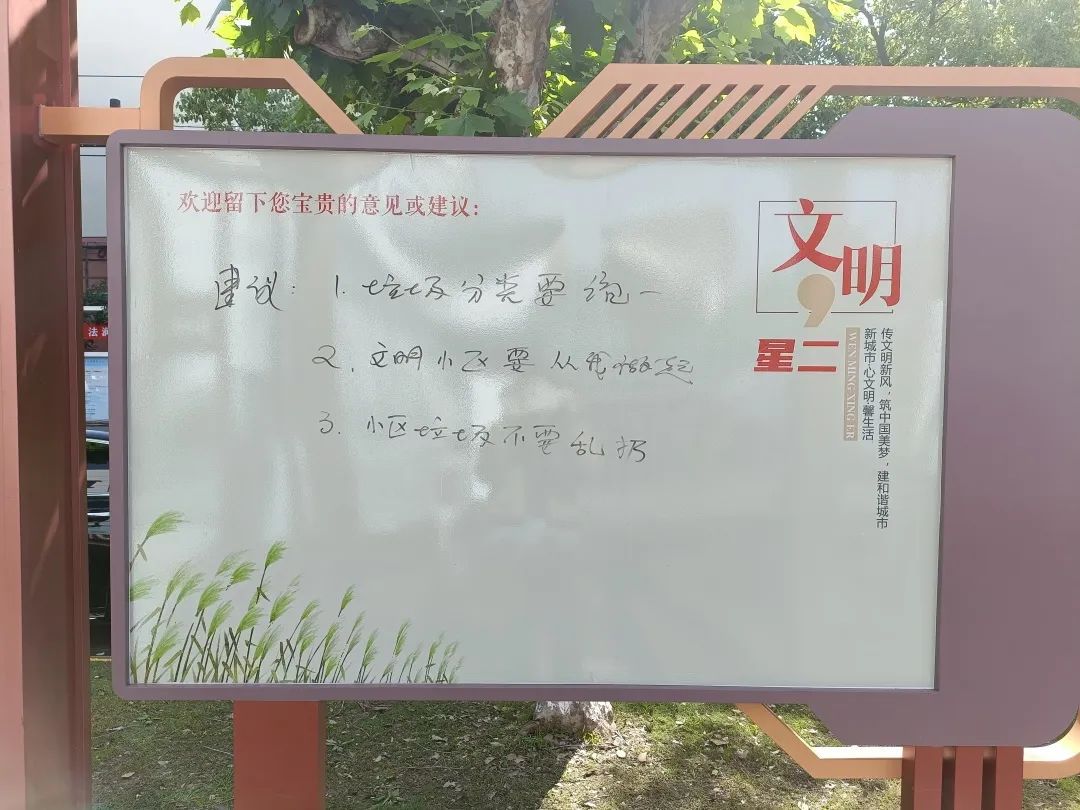 欢迎留下您宝贵的意见或建议:
建议: 1. 垃圾分类要统一
2. 文明小区要从我做起
3. 小区垃圾不要乱扔
文明
星二
WEN MING XING ER
传文明新风,筑中国美梦,建和谐城市
新城市心文明馨生活